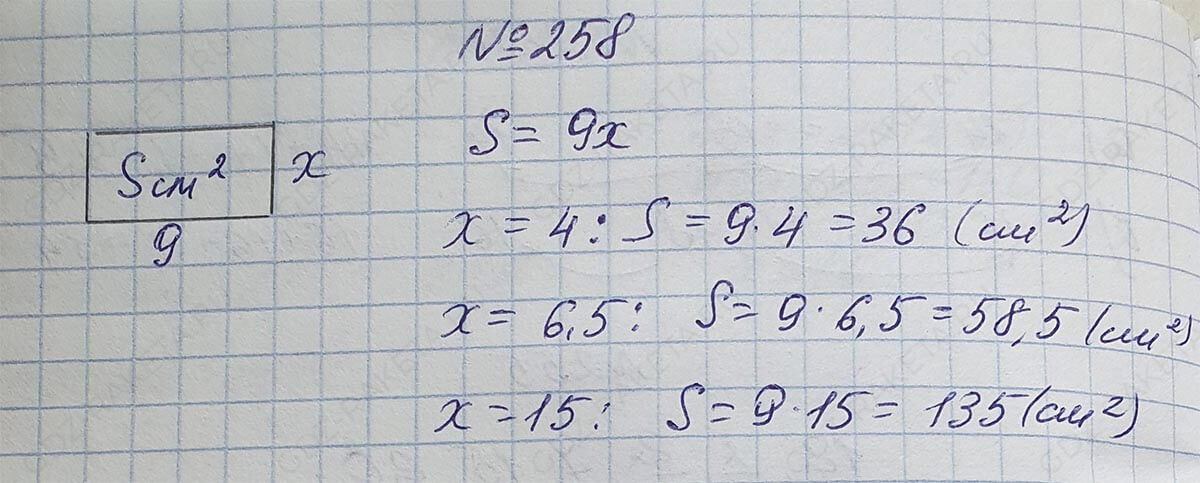 №258
S = 9x
Sсм² x
9
x = 4: S = 9·4 = 36 (см²)
x = 6,5: S = 9·6,5 = 58,5 (см²)
x = 15: S = 9·15 = 135 (см²)